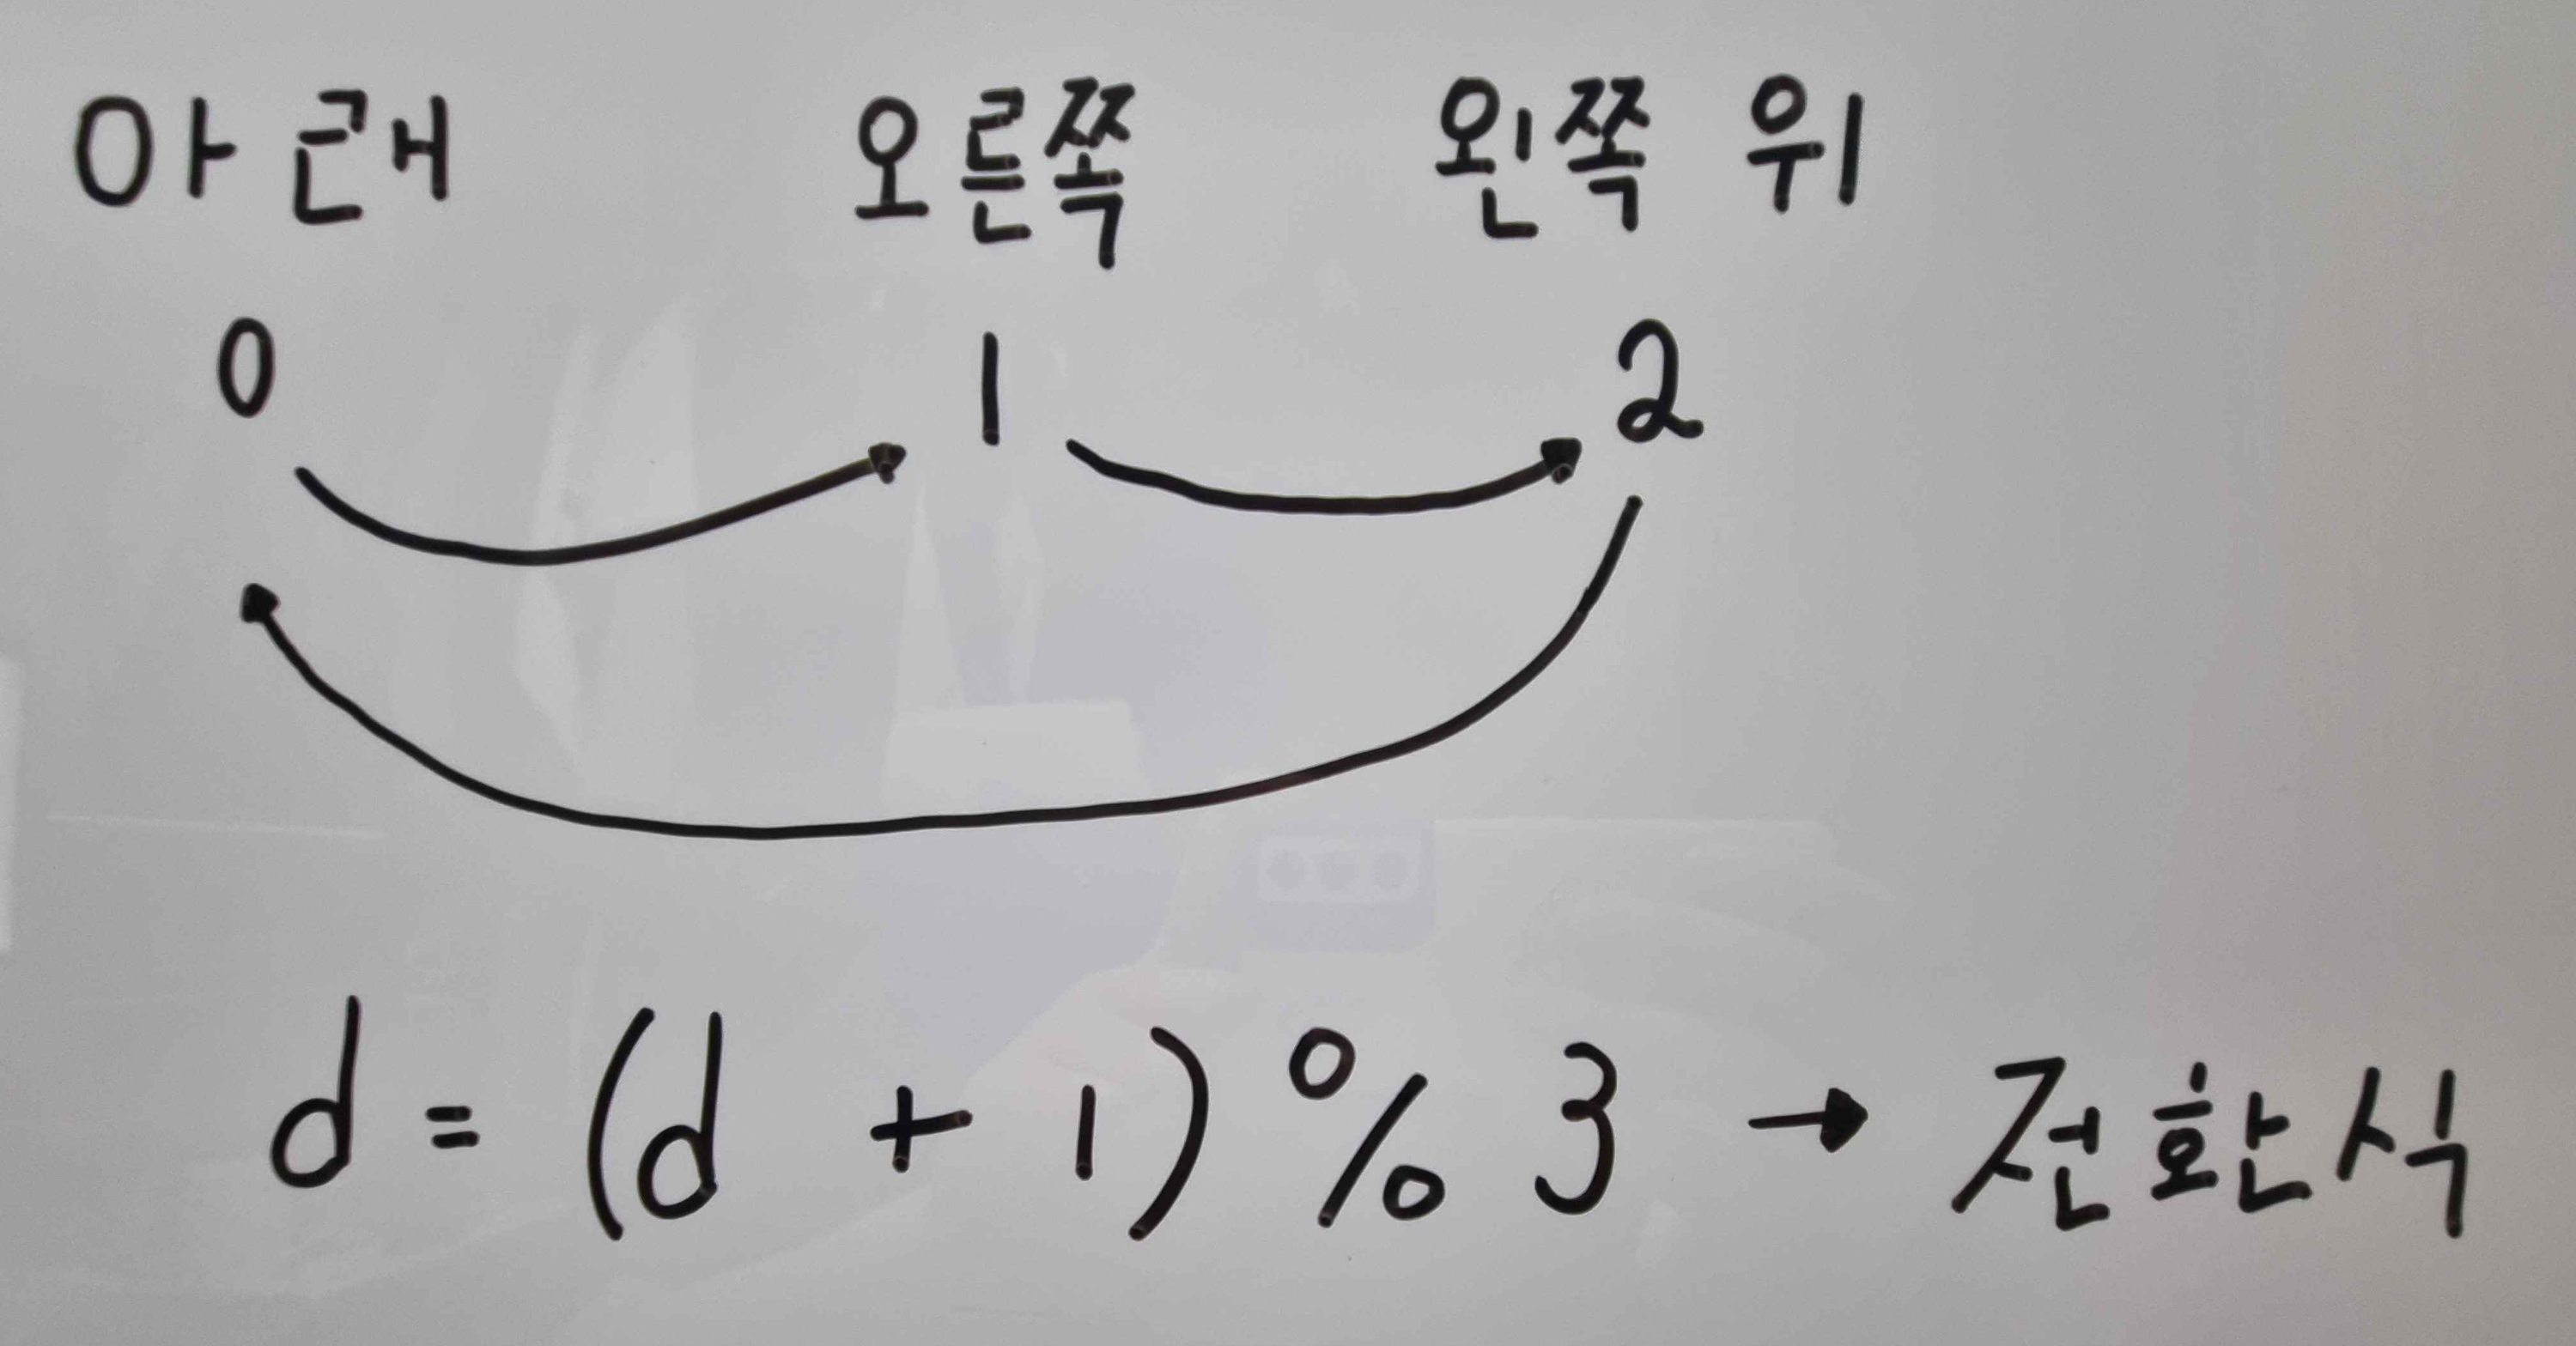 아래 오른쪽 왼쪽 위
0 1 2
d = (d + 1) % 3 → 전환식